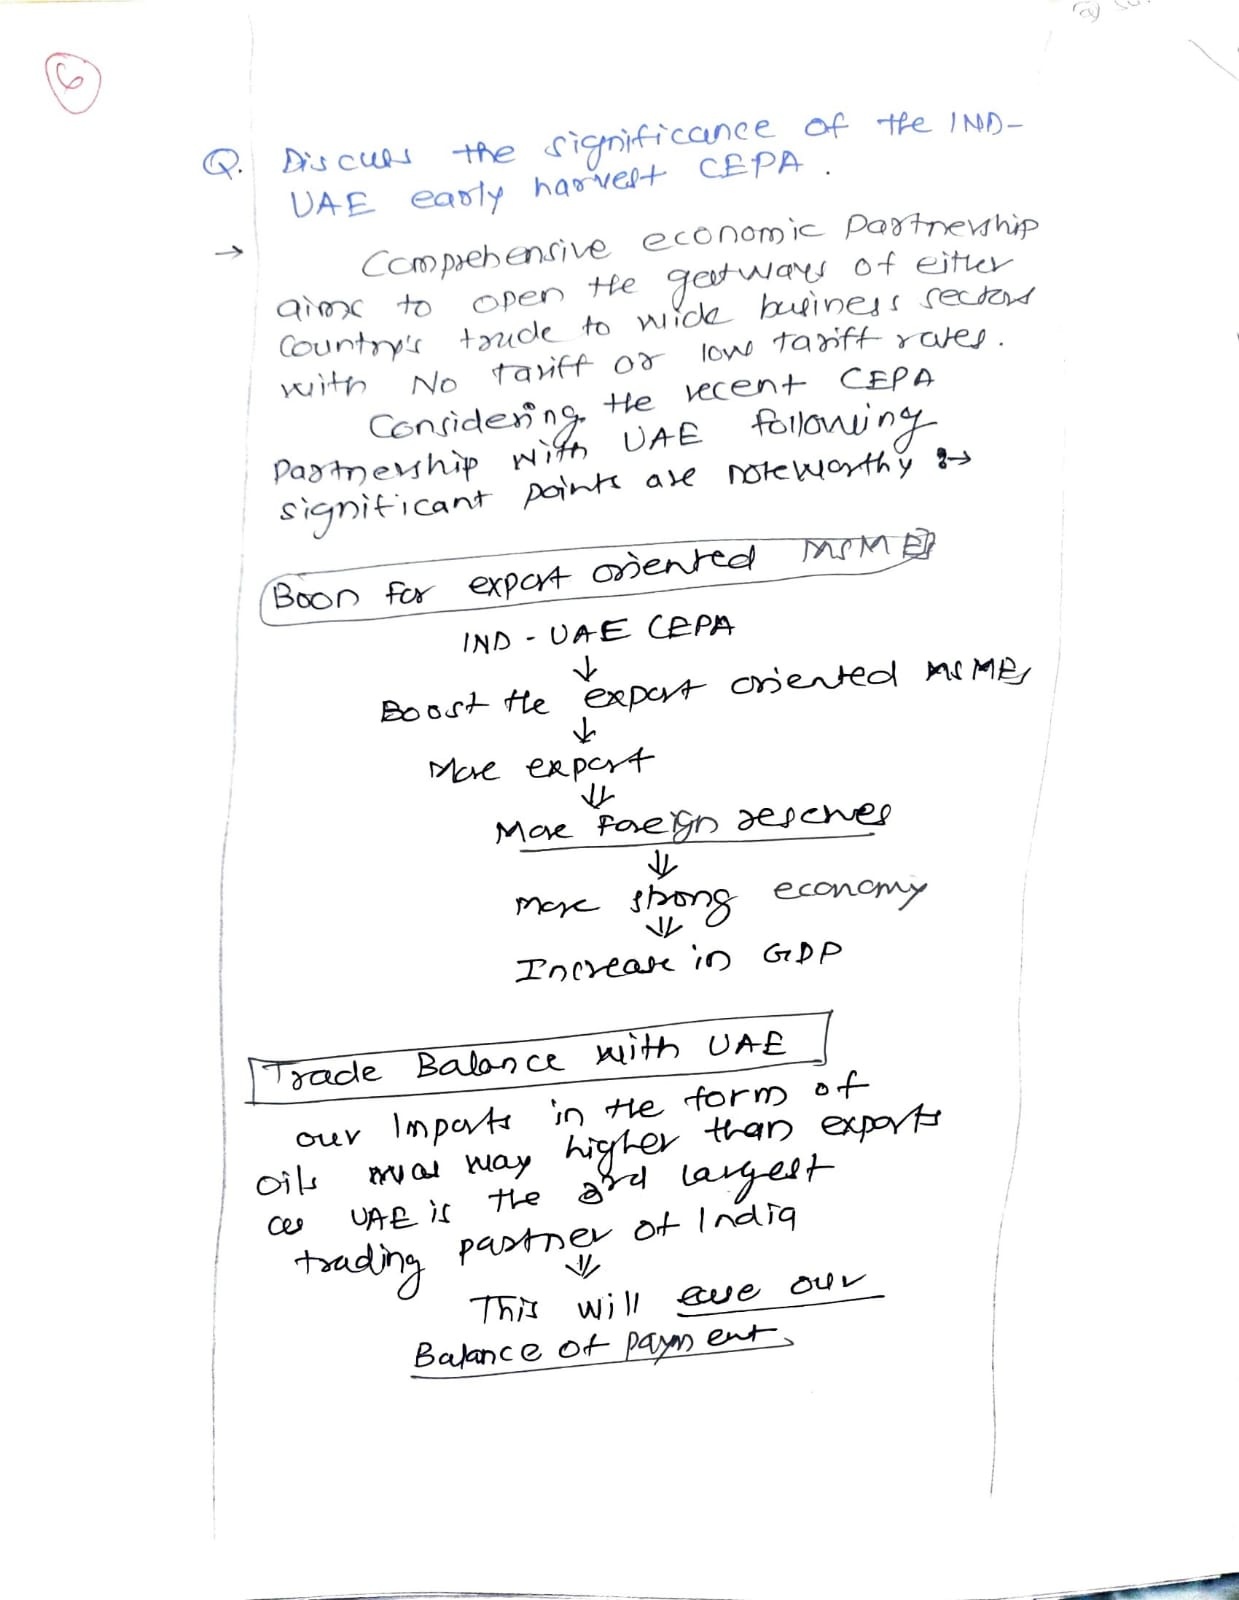 6
Q. Discuss the significance of the IND-
UAE early harvest CEPA.
→ Comprehensive economic Partnership
aims to open the geetways of either
Country's trade to wide business sectors
with No tariff or low tariff rates.
Considering the recent CEPA
Partnership with UAE following
significant points are noteworthy :→
Boon for export oriented MSME
IND - UAE CEPA
↓
Boost the export oriented MSMEs
↓
More export
⇓
More foreign reserves
⇓
More strong economy
⇓
Increase in GDP
Trade Balance with UAE
our Imports in the form of
oils was way higher than exports
as UAE is the 3rd largest
trading partner of India
⇓
This will ease our
Balance of payment.